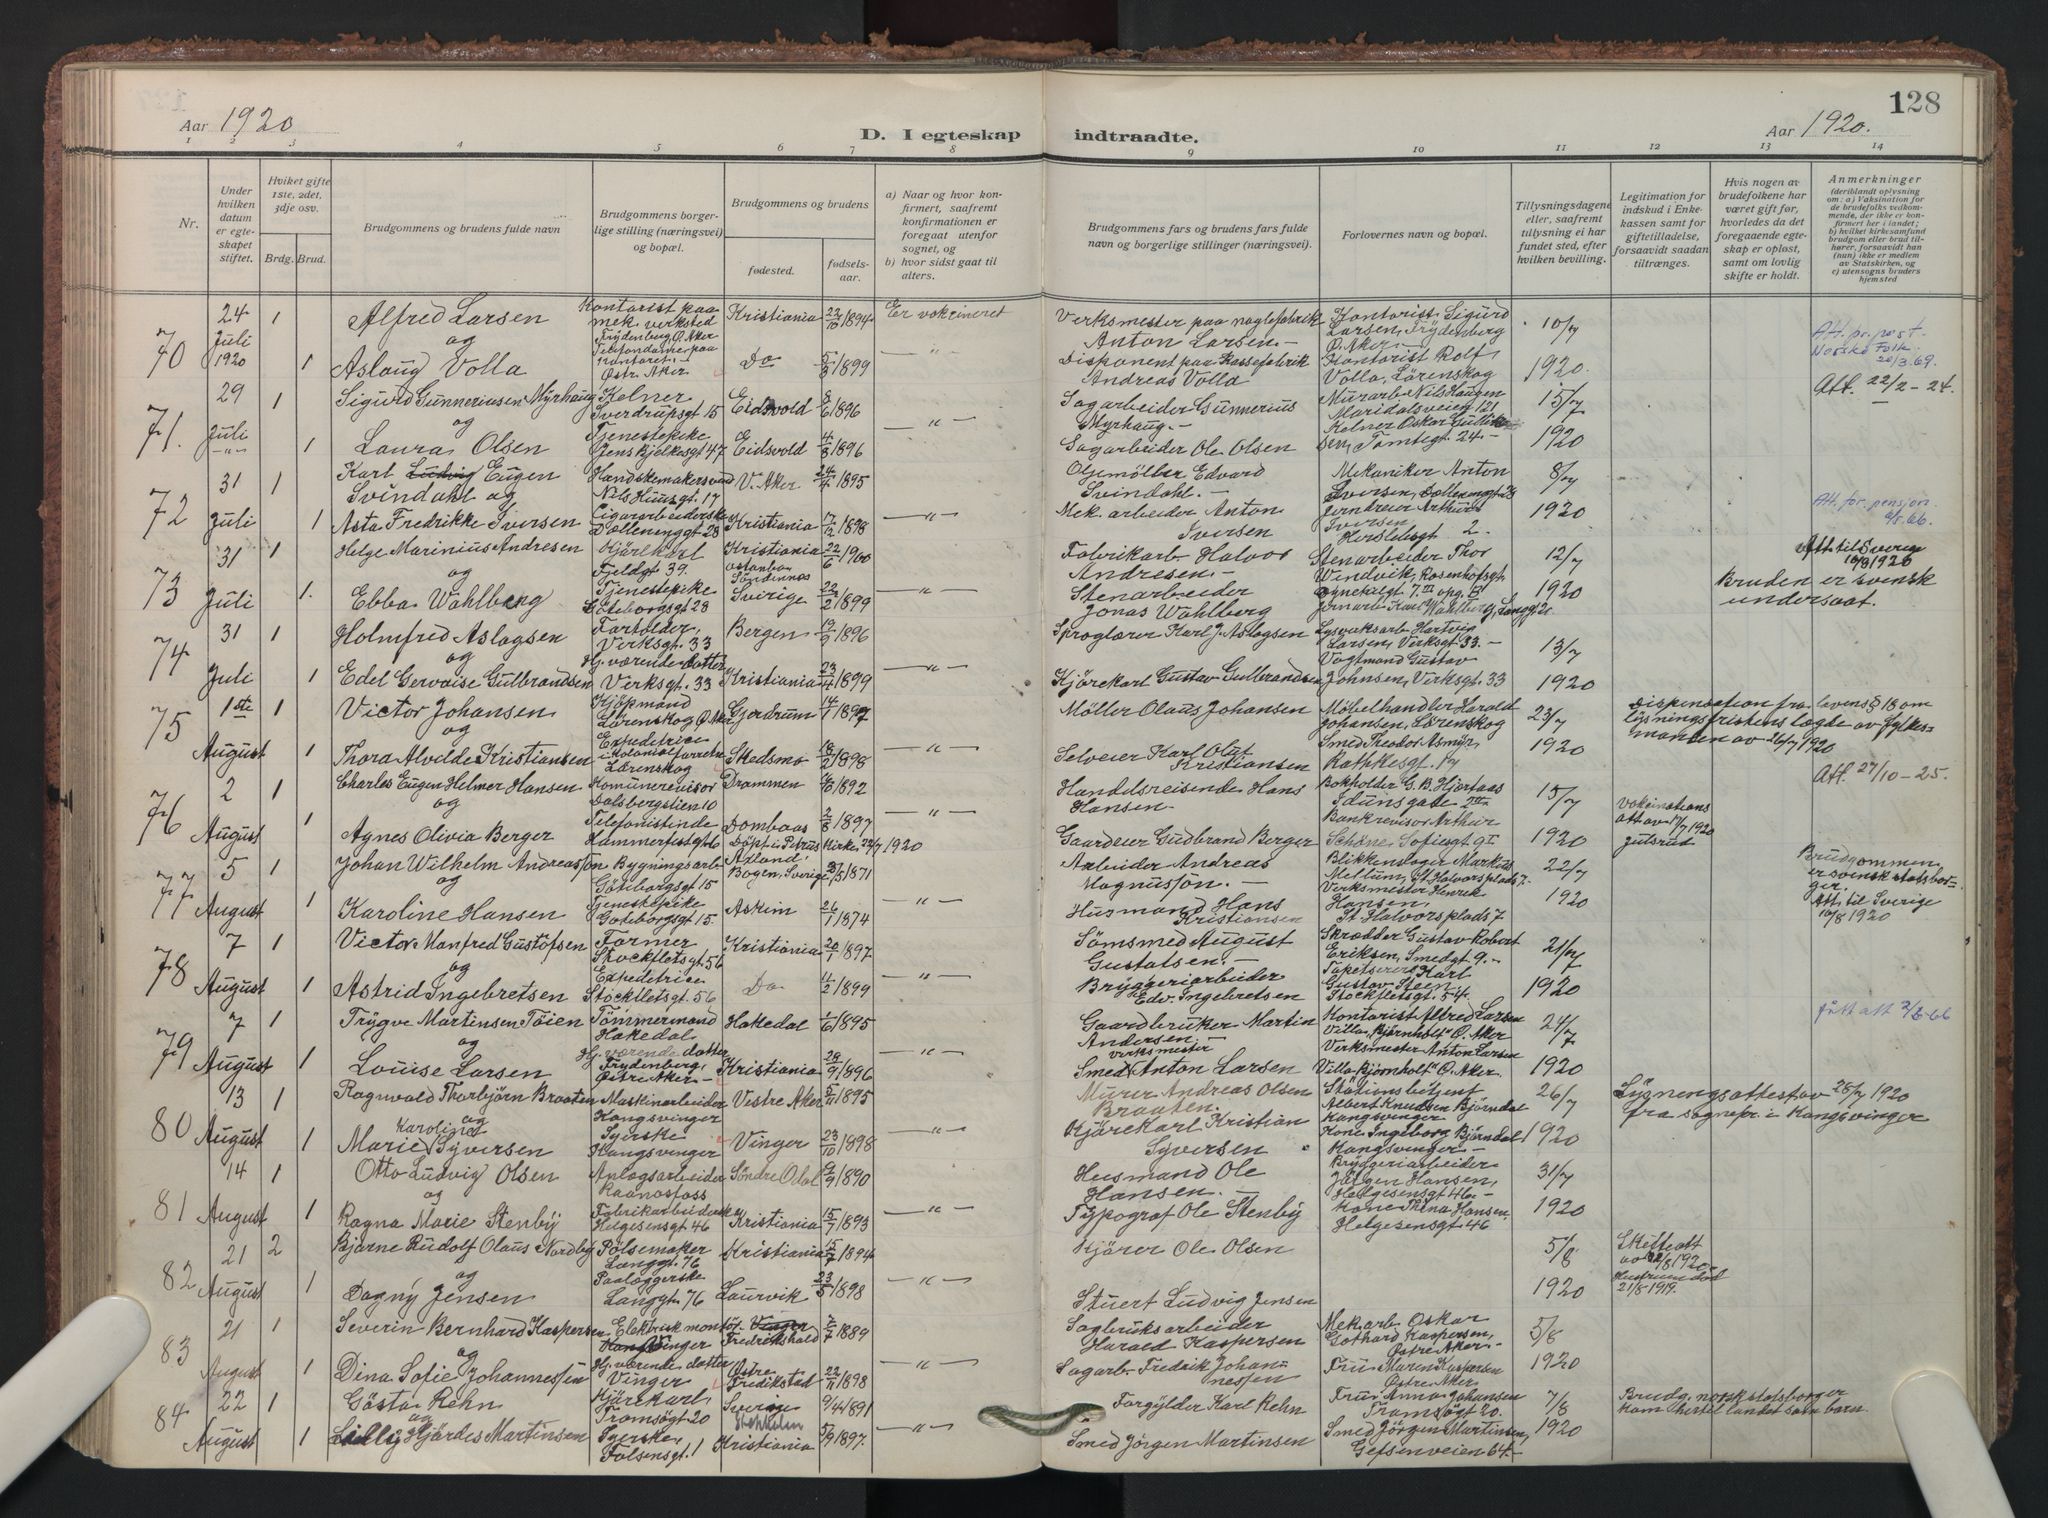 128
Aar 1920
D. I egteskap indtraadte.
Aar 1920.
1 2 3 4 5 6 7 8 9 10 11 12 13 14
Nr.
Under hvilken datum er egteskapet stiftet.
Hviket gifte 1ste, 2det, 3dje osv.
Brdg. Brud.
Brudgommens og brudens fulde navn
Brudgommens borgerlige stilling (næringsvei) og bopæl.
Brudgommens og brudens
fødested.
fødselsaar.
a) Naar og hvor konfirmert, saafremt konfirmationen er foregaat utenfor sognet, og
b) hvor sidst gaat til alters.
Brudgommens fars og brudens fars fulde navn og borgerlige stillinger (næringsvei).
Forlovernes navn og bopæl.
Tillysningsdagene eller, saafremt tillysning ei har fundet sted, efter hvilken bevilling.
Legitimation for indskud i Enkekassen samt for giftetilladelse, forsaavidt saadan tiltrænges.
Hvis nogen av brudefolkene har været gift før, hvorledes da det foregaaende egteskap er opløst, samt om lovlig skifte er holdt.
Anmerkninger
(deriblandt oplysning om: a) Vaksination for de brudefolks vedkommende, der ikke er konfirmert her i landet; b) hvilket kirkesamfund brudgom eller brud tilhører, forsaavidt han (hun) ikke er medlem av Statskirken, og c) utensogns bruders hjemsted
70 24 Juli 1920 1 Alfred Larsen Kontorist paa mek. verksted Frydenberg Ø. Aker Kristiania 22/10 1894 Er vakcineret Verksmester paa naglefabrik Anton Larsen Kontorist Sigurd Larsen, Frydenberg Ø. Aker 10/7
og
1 Aslaug Volla Telefondame paa kontoret. Østr. Aker Do 5/3 1899 —"— Disponent paa Kassefabrik Andreas Volla Kontorist Rolf Volla, Lörenskog 1920.
Att. pr. post. Norsk Folk. 20/3.69.
Att. 22/2-24.
71. 29 Juli 1 Sigurd Gunneriusen Myrhaug Kelner Sverdrupsgt 15 Eidsvold 8/6 1896 —"— Sagarbeider Gunnerius Myrhaug.- Murarb Nils Haugen Maridalsveien 121 15/7
og
1 Laura Olsen Tjenestepike Jens Bjelkesgt 47 Eidsvold 4/8 1896 Sagarbeider Ole Olsen Kelner Oskar Tomtegt. 24.- 1920
72 31 Juli 1 Karl Ludvig Eugen Svindahl og Handskemakersvend Nils Huusgt. 17 V. Aker 24/4 1895 Oljemöller Edvard Svindahl.- Mekaniker Anton Iversen, Dælenenggt 28 8/7
1 Asta Fredrikke Iversen Cigararbeiderske Dælenenggt 28 Kristiania 17/12 1898 —"— Mek. arbeider Anton Iversen Jerndreier Arthur Iversen Herslebsgt 2. 1920
Att. for. pensjon. 9/5.66.
73 31 Juli 1 Helge Marinius Andresen Kjörekarl Fjeldgt. 39. Kristiania 22/6 1900 Fabrikarb Halvor Andresen- Stenarbeider Thor Wendvik, Rosenhofsgt 12/7
og
1. Ebba Wahlberg Tjenestepike Göteborgsgt 28 Sverige 22/2 1899 —"— Stenarbeider Jonas Wahlberg Jernarb Karl Wahlberg, 1920
Bruden er svensk undersaat.
Att. til Sverige 10/9 1926
74 31 Juli 1 Holmfred Aslagsen Fartölder, Verksgt. 33 Bergen 19/9 1896 Sproglærer Karl J. Aslagsen Lysverksarb Hartvig Larsen, Verksgt. 33.- 13/7
og
1 Edel Gervaise Gulbrandsen Hj. værende datter Verksgt. 33 Kristiania 23/4 1899 —"— Kjörekarl Gustav Gulbrandsen Vogtmand Gustav Johnsen, Verksgt. 33 1920
75 1ste August 1 Victor Johansen Kjöpmand Lörenskog Ø. Aker Gjerdrum 14/1 1897 Möller Olaus Johansen Möbelhandler Harald Johansen, Lörenskog 23/7
og
1 Thora Alvilde Kristiansen Expeditrice i Kolonialforretn. Lörenskog Skedsmo 18/2 1898 —"— Selveier Karl Oluf Kristiansen Smed Theodor Asmyr, Rathkesgt. 17 1920
Dispensation fra lovens § 18 om lysningsfristens lagde av fylkesmanden av 26/7 1920
76 2 August 1 Charles Eugen Helmer Hansen Komunerevisor Dalsbergstien 10 Drammen 4/10 1892 Handelsreisende Hans Hansen Bokholder G. B. Hjortaas Idunsgate 15/7
og
1 Agnes Olivia Berger Telefonistinde Hammerfestgt 6 Dombaas Döpt i Petrus Kirke 1920 2/8 1897 —"— Gaardeier Gudbrand Berger Bankrevisor Arthur Schöne, Sofiesgt 9 I 1920
Vakcinations att av 17/7 1920 Jutsrud
Att. 27/10-25.
77 5 August 1 Johan Wilhelm Andreasson Bygningsarb. Göteborgsgt 15 Bogen, Sverige 1871 Arbeider Andreas Magnussön.- Blikkenslager Markus Mellum, St. Halvorsplads 7. 22/7
og
1 Karoline Hansen Tjenestepike Göteborgsgt 15. Askim 26/1 1874 —"— Husmand Hans Kristiansen Verksmester Henrik Hansen, St Halvorsplads 7 1920
Brudgommen er svensk statsborger.
Att. til Sverige 10/8 1920
78 7 August 1 Victor Manfred Gustafsen Former Stockfletsgt 56 Kristiania 20/1 1897 Sömsmed August Gustafsen.- Skrædder Gustav Robert Eriksen, Smedgt 9.- 21/7
og
1 Astrid Ingebretsen Expeditrice Stockfletsgt. 56 Do 11/2 1899 —"— Bryggeriarbeider Edv. Ingebretsen Tapetserer Karl Gustav Steen Stockfletsgt. 54. 1920
79 7 August 1 Trygve Martinsen Töien Tömmermand Hakedal Hakedal 1/6 1895 Gaardbruker Martin Andersen Kontorist Alfred Larsen Villa "Bjørnholt" Ø. Aker 24/7
og
1 Louise Larsen Hj. værende datter Frydenberg, Østre Aker- Kristiania 28/9 1896 —"— verksmester Smed Anton Larsen Verksmester Anton Larsen Villa "Bjørnholt" Ø. Aker. 1920
fått att 3/6-66
80 13 August 1 Ragnvald Thorbjörn Braaten Maskinarbeider Kongsvinger Vestre Aker 5/11 1895 Murer Andreas Olsen Braaten. Stationsbetjent Albert Knudsen Bjørndal Kongsvinger 26/7
og
1 Marie Karoline Syversen Syerske Kongsvinger Vinger 23/10 1898 —"— Kjörekarl Kristian Syversen Kone Ingeborg Bjørndal Kongsvinger - 1920
Lysningsattest av 28/7 1920 fra sognepr. i Kongsvinger
81 14 August 1 Otto Ludvig Olsen Anlægsarbeider Raanasfoss Söndre Odal 19/9 1890 Husmand Ole Hansen. Bryggeriarbeider Jörgen Hansen, Helgesensgt 46.- 31/7
og
1 Ragna Marie Stenby Fabrikarbeiderske Helgesensgt 46 Kristiania 15/7 1893 —"— Typograf Ole Stenby Kone Thina Hansen. Helgesensgt 46 1920
82 21 August 2 Bjarne Rudolf Olaus Nordby Pölsemaker Langgt. 76 Kristiania 15/7 1894 Kjörer Ole Olsen 5/8
og
1 Dagny Jensen Paalæggerske Langgt. 76 Laurvik 23/5 1898 —"— Stuert Ludvig Jensen 1920
Skifteatt av 1920. Hustrum död 21/8-1919.
83 21 August 1 Severin Bernhard Kaspersen Elektrisk montör. Kongsvinger Vinger Fredrikshald 2/7 1889 Sagbruksarbeider Harald Kaspersen Mek. arb. Oskar Gothard Kaspersen, Østre Aker- 5/8
og
1 Dina Sofie Johannessen Hj. værende datter Vinger Østre Fredikstad 22/11 1898 —"— Sagarb. Fredrik Johannessen Fru Maren Kaspersen Østre Aker 1920
84 22 August 1 Gösta Rehn Kjörekarl Tromsögt 20 Sverige Stokholm 9/4 1891 Forgylder Karl Rehn Fru Anna Johansen Tromsögt 20. 7/8
og
1 Lilly Hjördes Martinsen Syerske, Folsensgt. 1 Kristiania 5/9 1897. —"— Smed Jörgen Martinsen Smed Jörgen Martinsen, Gefsenveien 64.- 1920
Brudg. norsk statsborger kom hertil landet som barn.